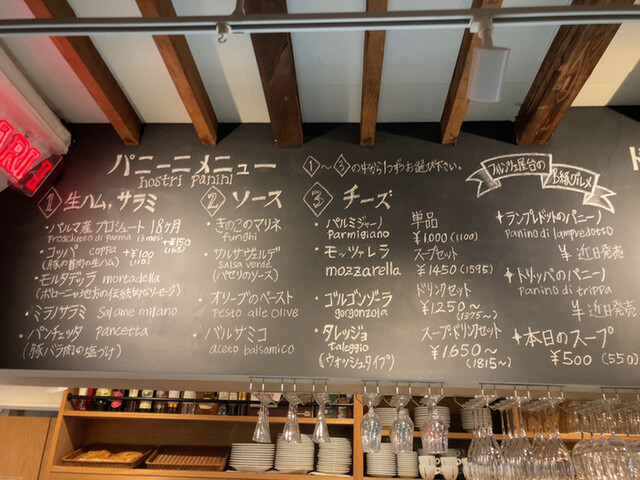 パニーニメニュー
nostri panini
① 生ハム,サラミ
・パルマ産プロシュート18ヶ月
Prosciutto di parma 18mesi +¥150
(165)
・コッパ coppa +¥100
(豚の首肉の生ハム) (110)
・モルタデッラ mortadella
(ボローニャ地方の伝統的なソーセージ)
・ミラノサラミ salame milano
・パンチェッタ pancetta
(豚バラ肉の塩づけ)
①〜③の中から1つずつお選び下さい。
② ソース
・きのこのマリネ
funghi
・サルサヴェルデ
salsa verde
(パセリのソース)
・オリーブのペースト
pesto alle olive
・バルサミコ
aceto balsamico
③ チーズ
・パルミジャーノ
Parmigiano
・モッツァレラ
mozzarella
・ゴルゴンゾーラ
gorgonzola
・タレッジョ
taleggio
(ウォッシュタイプ)
単品
¥1,000 (1100)
スープセット
¥1450 (1595)
ドリンクセット
¥1250〜
(1375〜)
スープ・ドリンクセット
¥1,650〜
(1815〜)
フィレンツェ屋台の
B級グルメ
✦ランプレドットのパニーノ
panino di lampredotto
¥ 近日発売
✦トリッパのパニーノ
panino di trippa
¥ 近日発売
✦本日のスープ
¥500 (550)